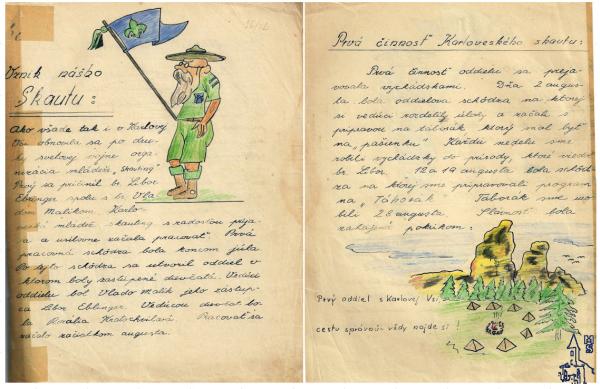 Vznik nášho
Skautu:
Ako všade tak i v Karlovej
Vsi obnovila sa po dru-
hej svetovej vojne orga-
nizácia mládeže „Skauting“
Prvý sa pričinil br. Libor
Eblinger spolu s br. Vla
dom Malikom. Karlo-
veská mládež skauting s radosťou prija-
la a usilovne začala pracovať. Prvá
pracovná schôdza bola koncom júla
Po tejto schôdza sa utvoril oddiel v
ktorom boly zastúpené dievčatá. Vedúci
oddielu bol Vlado Malik jeho zástup-
ca Libor Eblinger. Vedúcou dievčat bo-
la Amália Kratochvílová. Pracovať sa
začalo začiatkom augusta.
Prvá činnosť Karloveského skautu:
Prvá činnosť oddielu sa preja-
vovala vychádzkami. Dňa 2 augus-
ta bola oddielova schôdza na ktorej
si vedúci rozdelily úlohy a začali s
prípravou na táborák ktorý mal byť
na „pašienku“. Každú nedelu sme
robili vychádzky do prírody, ktoré viedol
br. Libor. 12 a 19 augusta bola schôd-
za na ktorej sme pripravovali program
na „Táborák“ Táborák sme uro-
bili 28 augusta. Slávnosť bola
zahájená pokrikom:
Prvý oddiel s Karlovej Vsi
cestu správnú vždy najde si!